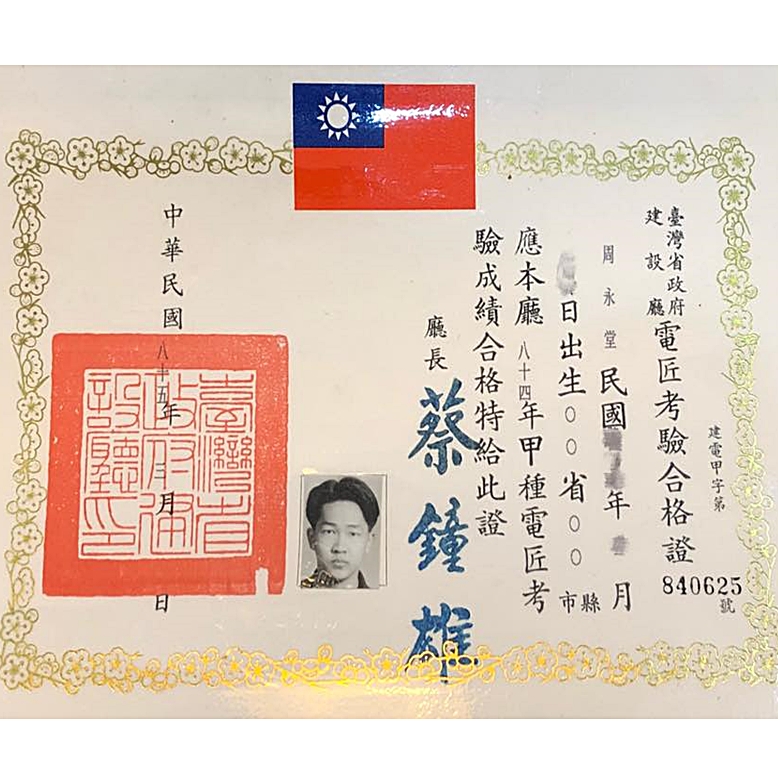 建電甲字第840625號
臺灣省政府建設廳電匠考驗合格證
周永堂民國年月
日出生○○省○○縣市
應本廳八十四年甲種電匠考
驗成績合格特給此證
廳長蔡鐘雄
中華民國八十五年月日
臺灣省
政府建
設廳印